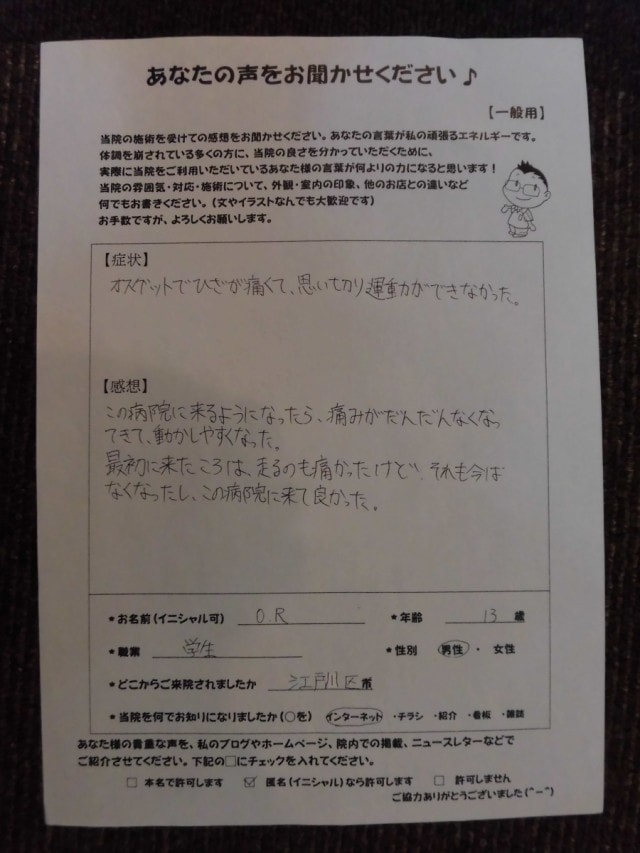 あなたの声をお聞かせください♪
【一般用】
当院の施術を受けての感想をお聞かせください。あなたの言葉が私の頑張るエネルギーです。
体調を崩されている多くの方に、当院の良さを分かっていただくために、
実際に当院をご利用いただいているあなた様の言葉が何よりの力になると思います！
当院の雰囲気・対応・施術について、外観・室内の印象、他のお店との違いなど
何でもお書きください。(文やイラストなんでも大歓迎です)
お手数ですが、よろしくお願いします。
【症状】
オスグットでひざが痛くて、思いっきり運動ができなかった。
【感想】
この病院に来るようになったら、痛みがだんだんなくなっ
てきて、動かしやすくなった。
最初に来たころは、走るのも痛かったけど、それも今は
なくなったし、この病院に来て良かった。
★お名前(イニシャル可) O.R ★年齢 13 歳
★職業 学生 ★性別 男性・女性
★どこからご来院されましたか 江戸川区市
★当院を何でお知りになりましたか(○を) インターネット ・チラシ ・紹介 ・看板 ・雑誌
あなた様の貴重な声を、私のブログやホームページ、院内での掲載、ニュースレターなどで
ご紹介させてください。下記の□にチェックを入れてください。
□ 本名で許可します ☑ 匿名(イニシャル)なら許可します □ 許可しません
ご協力ありがとうございました(^-^)